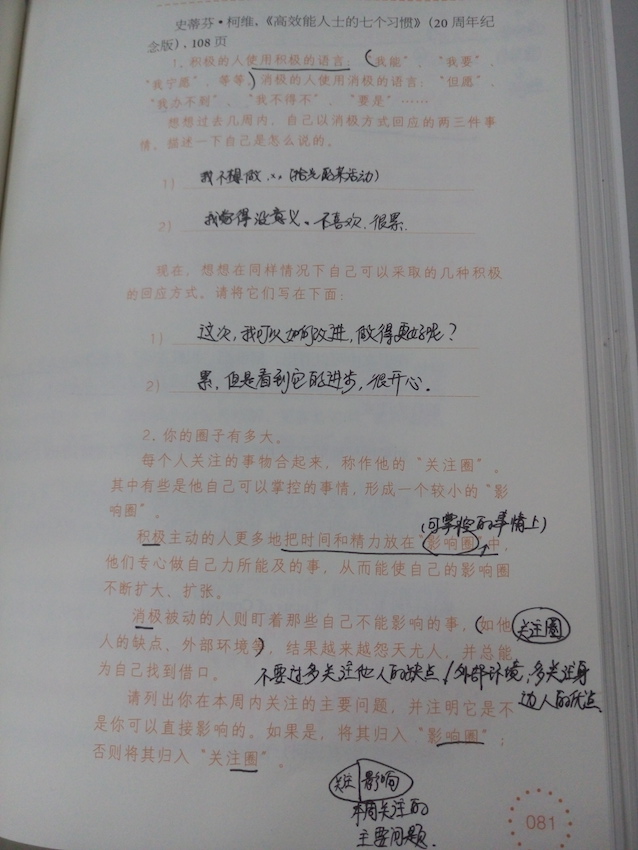 史蒂芬·柯维,《高效能人士的七个习惯》(20周年纪
念版),108页
1,积极的人使用积极的语言:“我能”、“我要”、
“我宁愿”,等等。消极的人使用消极的语言:“但愿”、
“我办不到”、“我不得不”、“要是”……
想想过去几周内,自己以消极方式回应的两三件事
情。描述一下自己是怎么说的。
1) 我不想做...(拾光的某活动)
2) 我觉得没意义、不喜欢、很累.
现在,想想在同样情况下自己可以采取的几种积极
的回应方式。请将它们写在下面:
1) 这次,我可以如何改进,做得更好呢?
2) 累,但是看到它的进步,很开心.
2,你的圈子有多大。
每个人关注的事物合起来,称作他的“关注圈”。
其中有些是他自己可以掌控的事情,形成一个较小的“影
响圈”。
(可掌控的事情上)
积极主动的人更多地把时间和精力放在“影响圈”中,
他们专心做自己力所能及的事,从而能使自己的影响圈
不断扩大、扩张。
消极被动的人则盯着那些自己不能影响的事,(如他
关注圈
人的缺点、外部环境等),结果越来越怨天尤人,并总能
为自己找到借口。
不要过多关注他人的缺点/外部环境,多关注身
边人的优点
请列出你在本周内关注的主要问题,并注明它是不
是你可以直接影响的。如果是,将其归入“影响圈”;
否则将其归入“关注圈”。
关注 影响
本周关注的
主要问题.
081